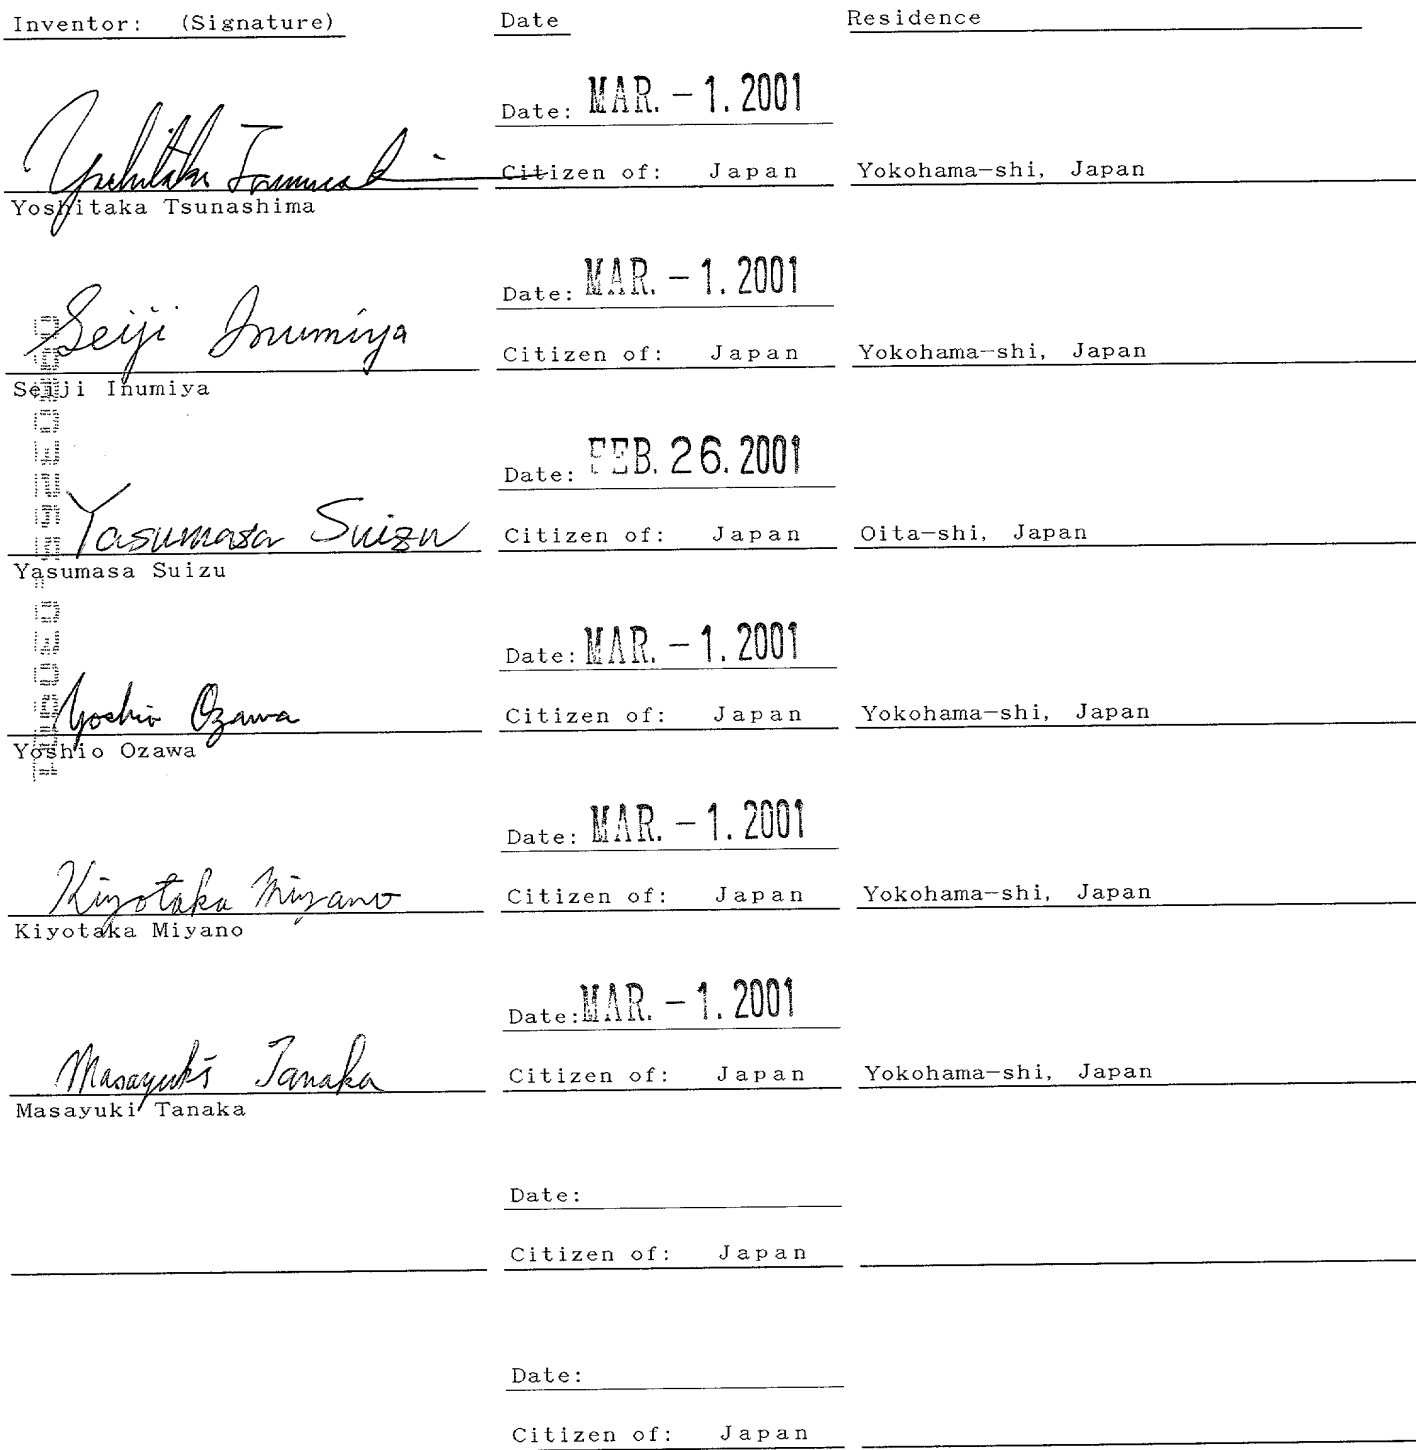 Inventor: (Signature) Date Residence
Date: MAR. - 1. 2001
Yoshitaka Tsunashima Citizen of: Japan Yokohama-shi, Japan
Yoshitaka Tsunashima
Date: MAR. - 1. 2001
Seiji Inumiya Citizen of: Japan Yokohama-shi, Japan
Seiji Inumiya
Date: FEB. 26. 2001
Yasumasa Suizu Citizen of: Japan Oita-shi, Japan
Yasumasa Suizu
Date: MAR. - 1. 2001
Yoshio Ozawa Citizen of: Japan Yokohama-shi, Japan
Yoshio Ozawa
Date: MAR. - 1. 2001
Kiyotaka Miyano Citizen of: Japan Yokohama-shi, Japan
Kiyotaka Miyano
Date: MAR. - 1. 2001
Masayuki Tanaka Citizen of: Japan Yokohama-shi, Japan
Masayuki Tanaka
Date:
Citizen of: Japan
Date:
Citizen of: Japan